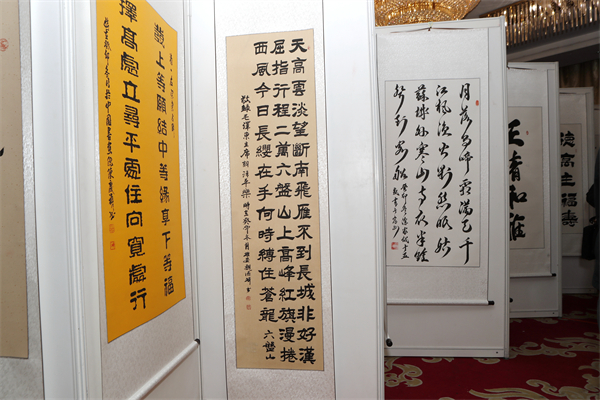 上等願結中等緣享下等福
擇高處立尋平處住向寬處行
天高雲淡望斷南飛雁不到長城非好漢
屈指行程二萬六盤山上高峰紅旗漫捲
西風今日長纓在手何時縛住蒼龍 六盤山
敬録毛澤東主席詞清平樂
月落烏啼霜滿天
江楓漁火對愁眠姑
蘇城外寒山寺夜半鐘
聲到客船
清和雅